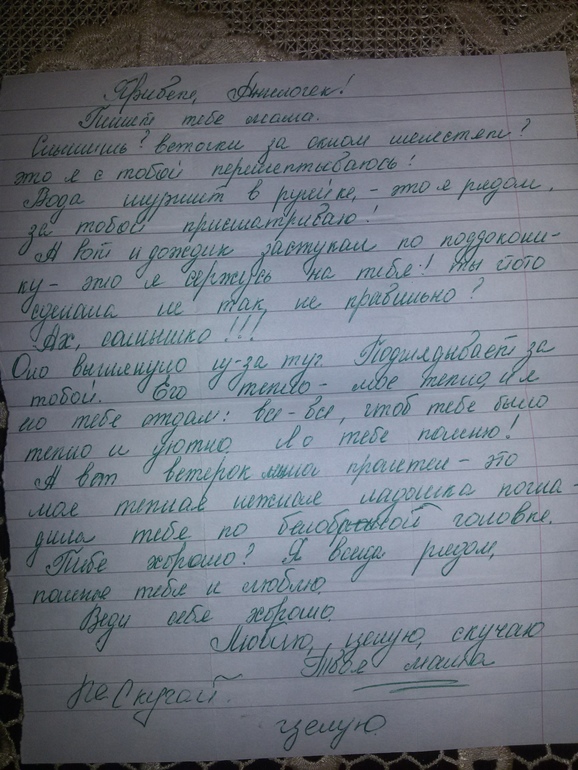 Привет, Ангелочек!
Пишет тебе мама.
Слышишь? веточки за окном шелестят?
это я с тобой перешептываюсь!
Вода журжит в ручейке, - это я рядом,
за тобой присматриваю!
А вот и дождик застукал по поддокони-
ку - это я сержусь на тебя! ты што то
сделала не так, не правильно?
Ах, солнышко!!!
Оло выглянуло из-за туч. Подглядывает за
тобой. Его тепло - мое тепло, и я
его тебе отдам: все-все, чтоб тебе было
тепло и уютно. Я о тебе помню!
А вот ветерок мимо пролетел - это
моя теплая нежная ладошка погла-
дила тебе по белобрысой головке.
Тебе хорошо? Я всегда рядом,
помню тебя и люблю.
Веди себя хорошо.
Люблю, целую, скучаю
Твоя мама
Не Скучай.
целую.